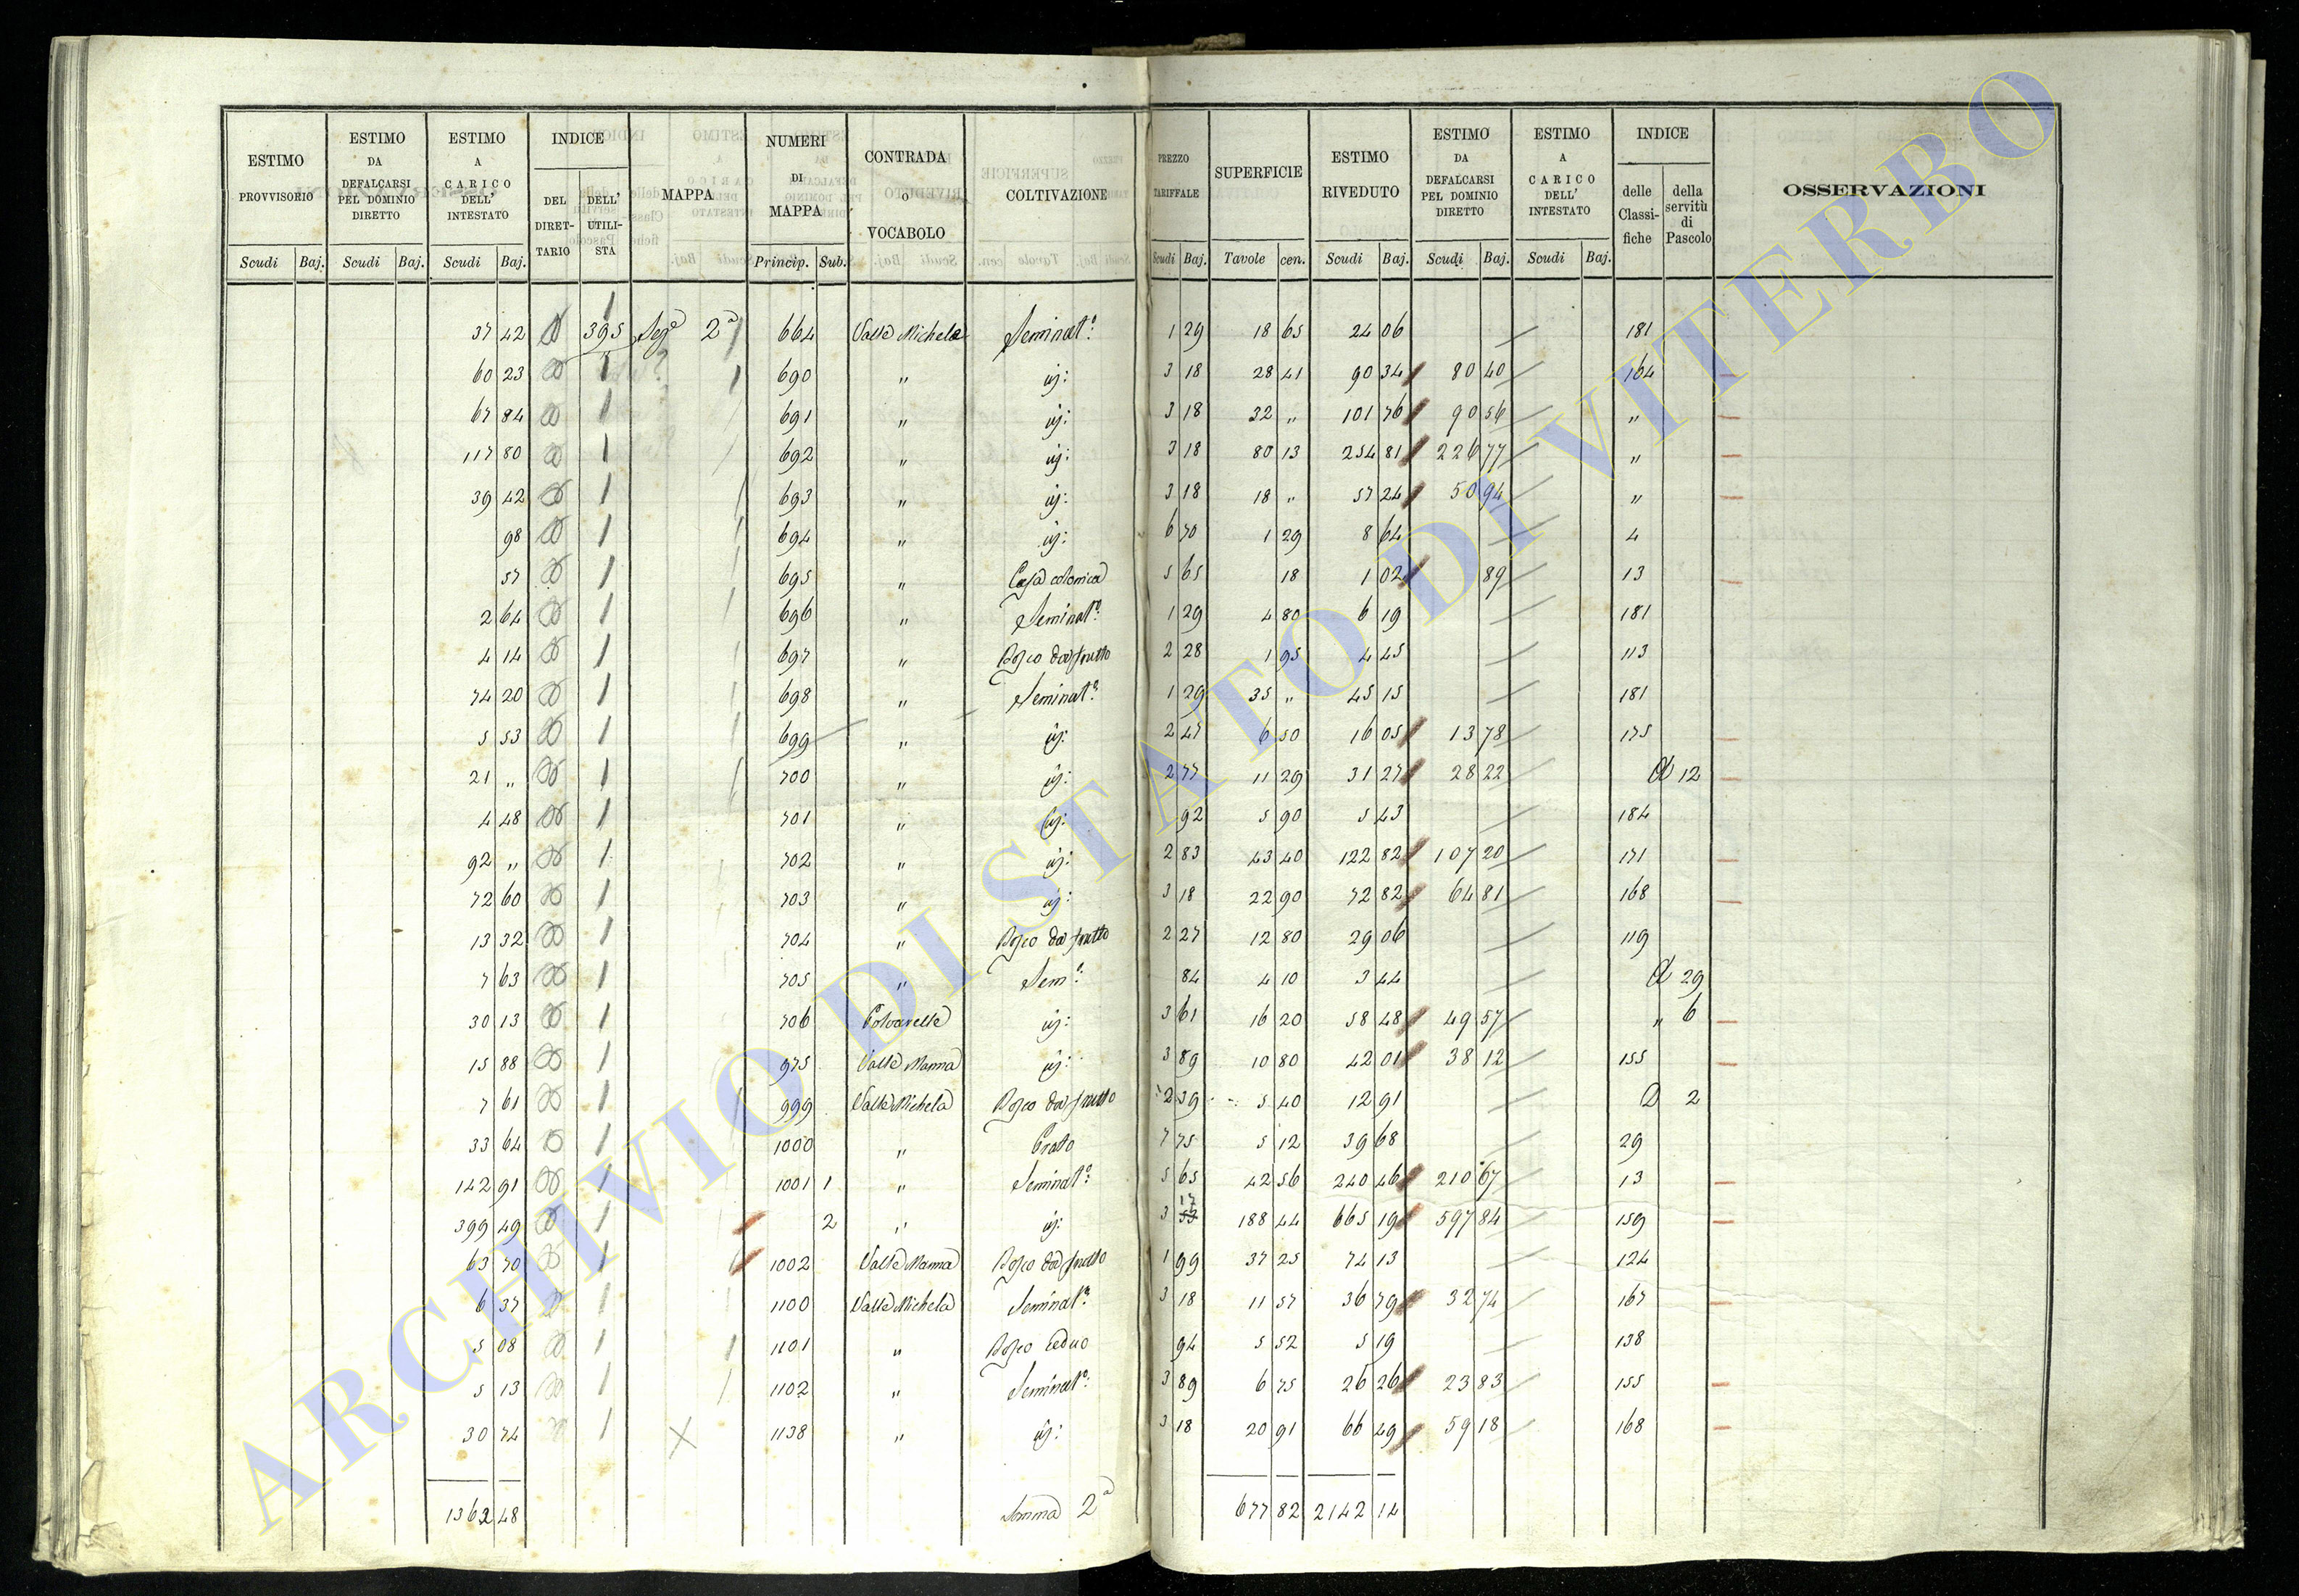 ESTIMO PROVVISORIO | ESTIMO DA DEFALCARSI PEL DOMINIO DIRETTO | ESTIMO A CARICO DELL' INTESTATO | INDICE DEL DIRET-TARIO | DELL' UTILI-STA | MAPPA | NUMERI DI MAPPA | CONTRADA O VOCABOLO | COLTIVAZIONE | PREZZO TARIFFALE | SUPERFICIE | ESTIMO RIVEDUTO | ESTIMO DA DEFALCARSI PEL DOMINIO DIRETTO | ESTIMO A CARICO DELL' INTESTATO | INDICE delle Classi-fiche | della servitù di Pascolo | OSSERVAZIONI
Scudi Baj. Scudi Baj. Scudi Baj. Princip. Sub. Scudi Baj. Tavole cen. Scudi Baj. Scudi Baj. Scudi Baj.
37 42 395 Segª 2ª 664 Valle Michela Seminatº 1 29 18 65 24 06 181
60 23 690 " id: 3 18 28 41 90 34 80 40 164
67 84 691 " id: 3 18 32 " 101 76 90 56 "
117 80 692 " id: 3 18 80 13 254 81 226 77 "
39 42 693 " id: 3 18 18 " 57 24 50 94 "
98 694 " id: 6 70 1 29 8 64 4
57 695 " Casa colonica 5 65 18 1 02 89 13
2 64 696 " Seminatº 1 29 4 80 6 19 181
4 14 697 " Bosco da frutto 2 28 1 95 4 45 113
74 20 698 " Seminatº 1 29 35 " 45 15 181
5 53 699 " id: 2 47 6 50 16 05 13 78 175
21 " 700 " id: 2 77 11 29 31 27 28 22 12
4 48 701 " id: 92 5 90 5 43 184
92 " 702 " id: 2 83 43 40 122 82 107 20 171
72 60 703 " id: 3 18 22 90 72 82 64 81 168
13 32 704 " Bosco da frutto 2 27 12 80 29 06 119
7 63 705 " Semº 84 4 10 3 44 29
30 13 706 id: 3 61 16 20 58 48 49 57 " 6
15 88 975 Valle Nanna id: 3 89 10 80 42 01 38 12 155
7 61 999 Valle Michela Bosco da frutto 2 39 5 40 12 91 2
33 64 1000 " Prato 7 75 5 12 39 68 29
142 91 1001 1 " Seminatº 5 65 42 56 240 46 210 67 13
399 49 2 " id: 3 188 44 665 19 597 84 159
63 70 1002 Valle Nanna Bosco da frutto 1 99 37 25 74 13 124
6 37 1100 Valle Michela Seminatº 3 18 11 57 36 79 32 74 167
5 08 1101 " Bosco ceduo 94 5 52 5 19 138
5 13 1102 " Seminatº 3 89 6 75 26 26 23 83 155
30 74 1138 " id: 3 18 20 91 66 49 59 18 168
1362 48 Somma 2ª 677 82 2142 14
ARCHIVIO DI STATO DI VITERBO